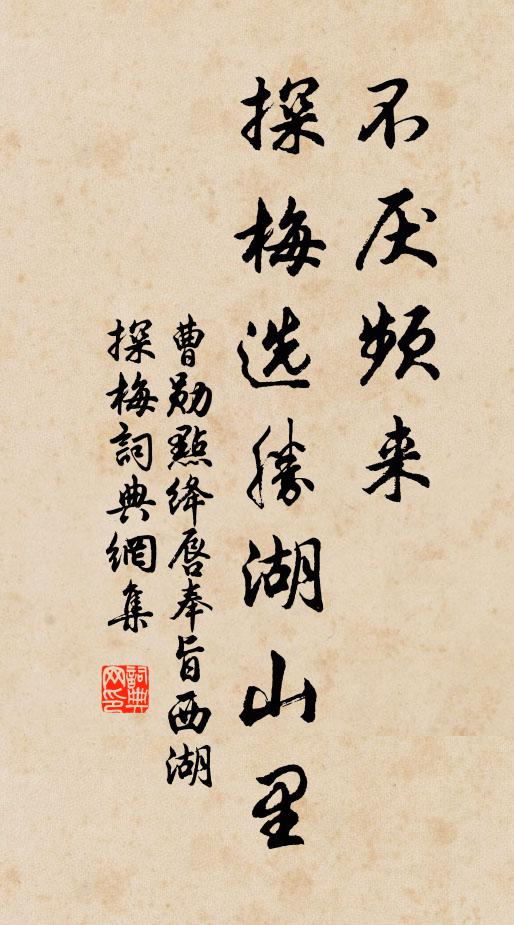 不厌频来
探梅选胜湖山里
曹勋點绛唇奉旨西湖
探梅詞典網集
詞典
网印